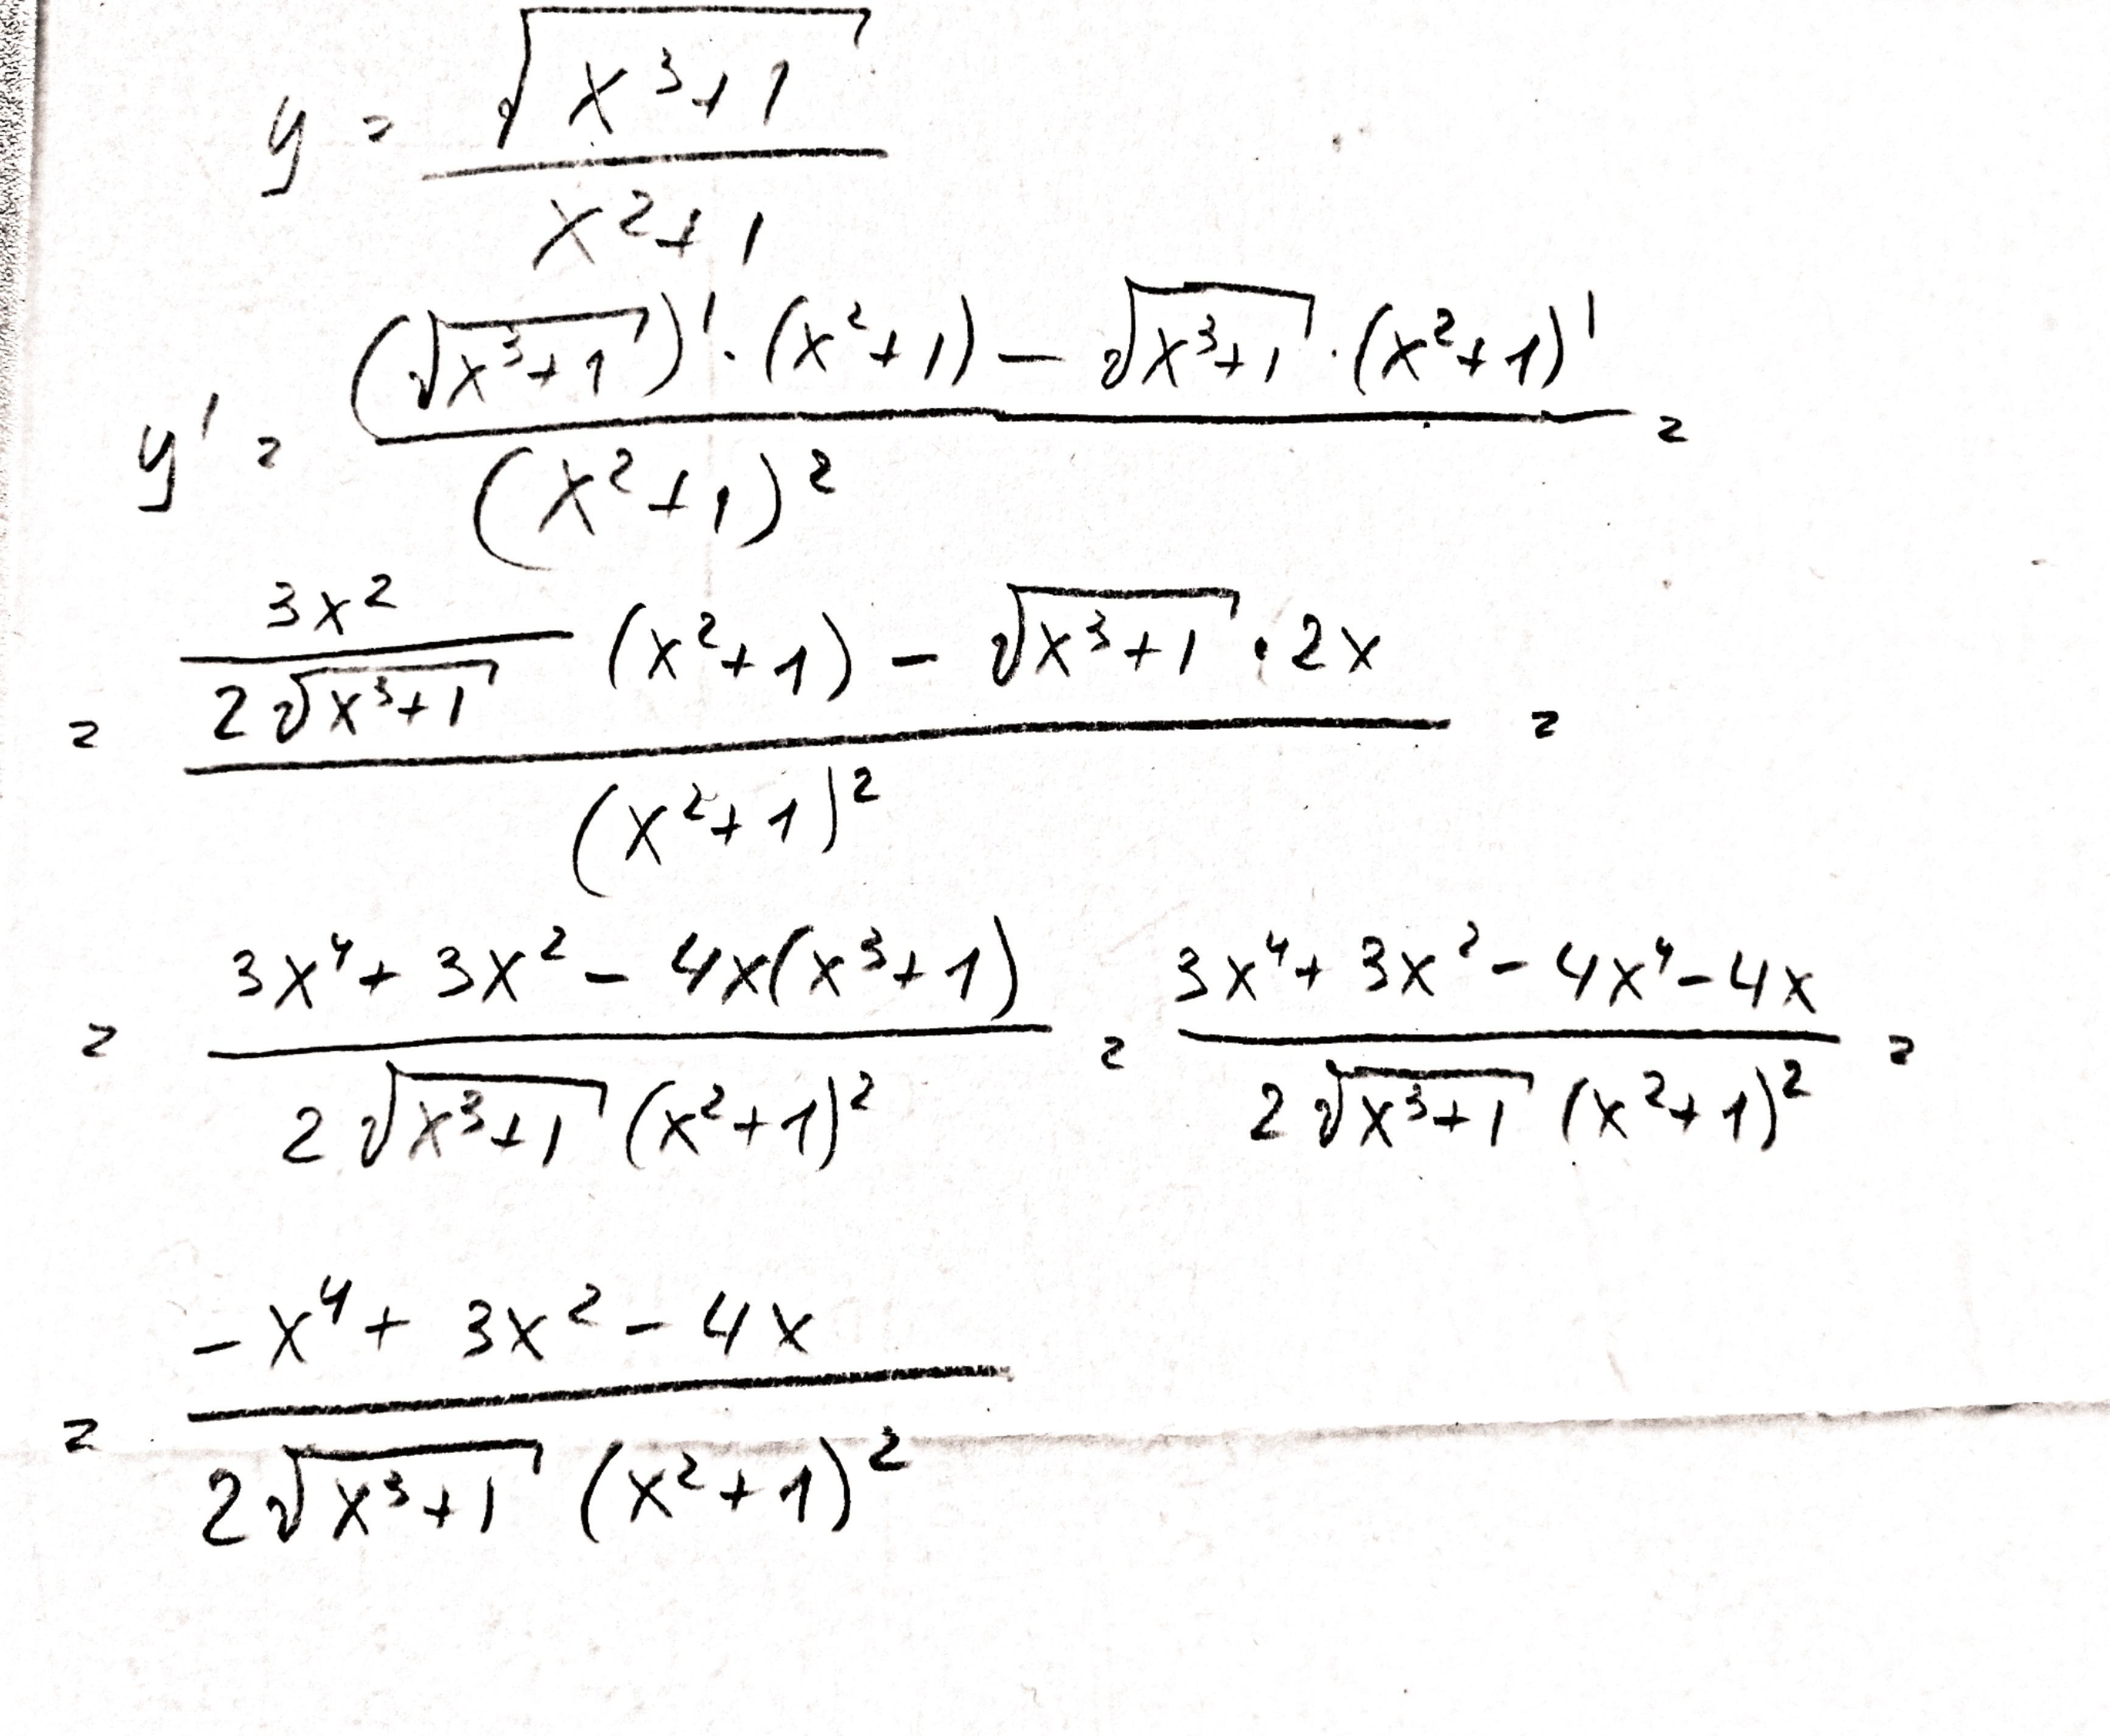 y = √(x³+1) / (x²+1)
y' = ((√(x³+1))' · (x²+1) − √(x³+1) · (x²+1)') / (x²+1)² =
= (3x² / (2√(x³+1)) (x²+1) − √(x³+1) · 2x) / (x²+1)² =
= (3x⁴ + 3x² − 4x(x³+1)) / (2√(x³+1) (x²+1)²) = (3x⁴ + 3x² − 4x⁴ − 4x) / (2√(x³+1) (x²+1)²) =
= (−x⁴ + 3x² − 4x) / (2√(x³+1) (x²+1)²)